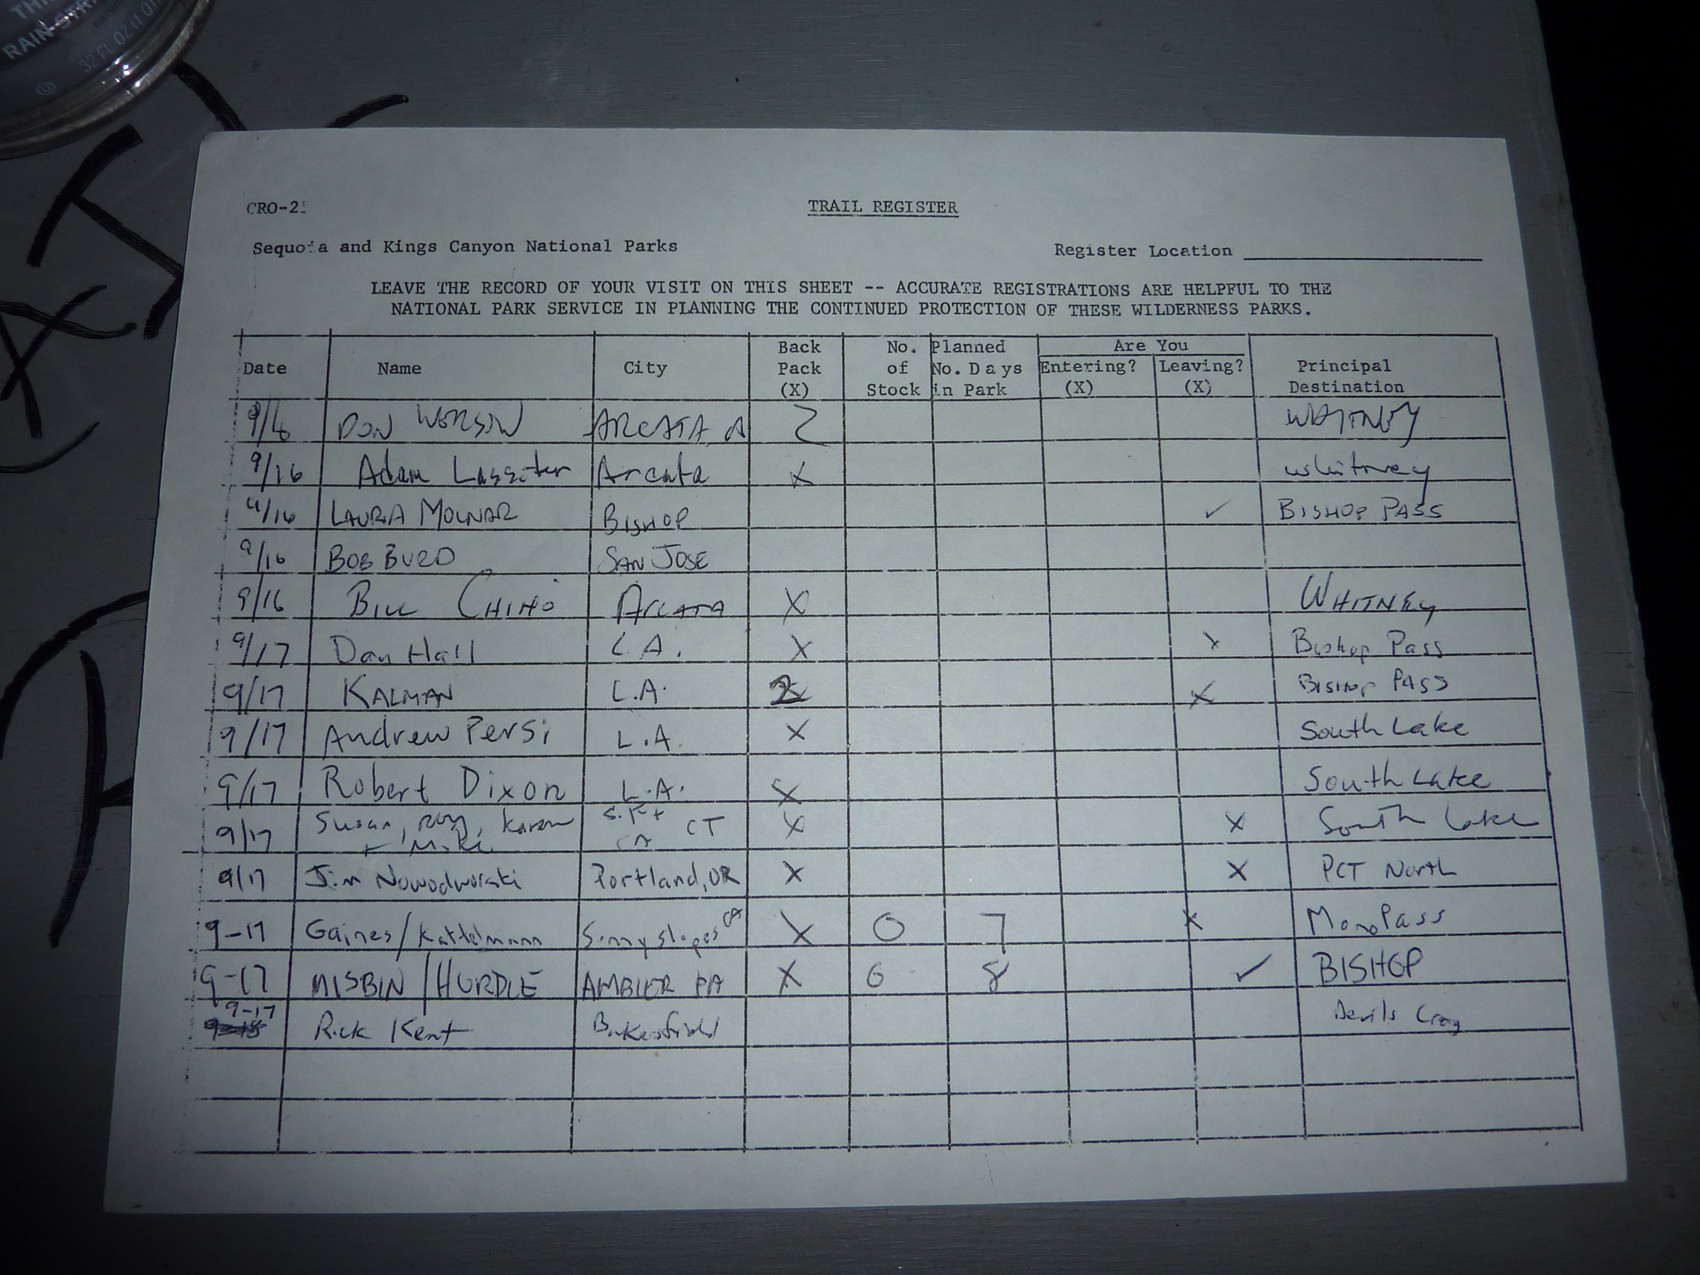 RAIN-
32 fl oz
CRO-2
TRAIL REGISTER
Sequoia and Kings Canyon National Parks
Register Location
LEAVE THE RECORD OF YOUR VISIT ON THIS SHEET -- ACCURATE REGISTRATIONS ARE HELPFUL TO THE
NATIONAL PARK SERVICE IN PLANNING THE CONTINUED PROTECTION OF THESE WILDERNESS PARKS.
Date Name City Back Pack (X) No. of Stock Planned No. Days in Park Are You Entering? (X) Leaving? (X) Principal Destination
DON ARCATA 2 WHITNEY
9/16 Adam Lassiter Arcata X Whitney
9/16 LAURA MOLNAR BISHOP ✓ BISHOP PASS
9/16 BOB BURD SAN JOSE
9/16 BILL CHINO ARCATA X WHITNEY
9/17 Dan Hall L.A. X X Bishop Pass
9/17 KALMAN L.A. 2 X BISHOP PASS
9/17 Andrew Persi L.A. X South Lake
9/17 Robert Dixon L.A. X South Lake
9/17 Susan, Ray, Karen + Mike S.F + CA CT X X South Lake
9/17 Jim Nowodworski Portland, OR X X PCT North
9-17 Gaines/Kattelmann Sunnyslopes CA X 0 7 X Mono Pass
9-17 NISBIN/HURDLE AMBLER PA X 0 8 ✓ BISHOP
9-17 Rick Kent Bakersfield Devils Crag